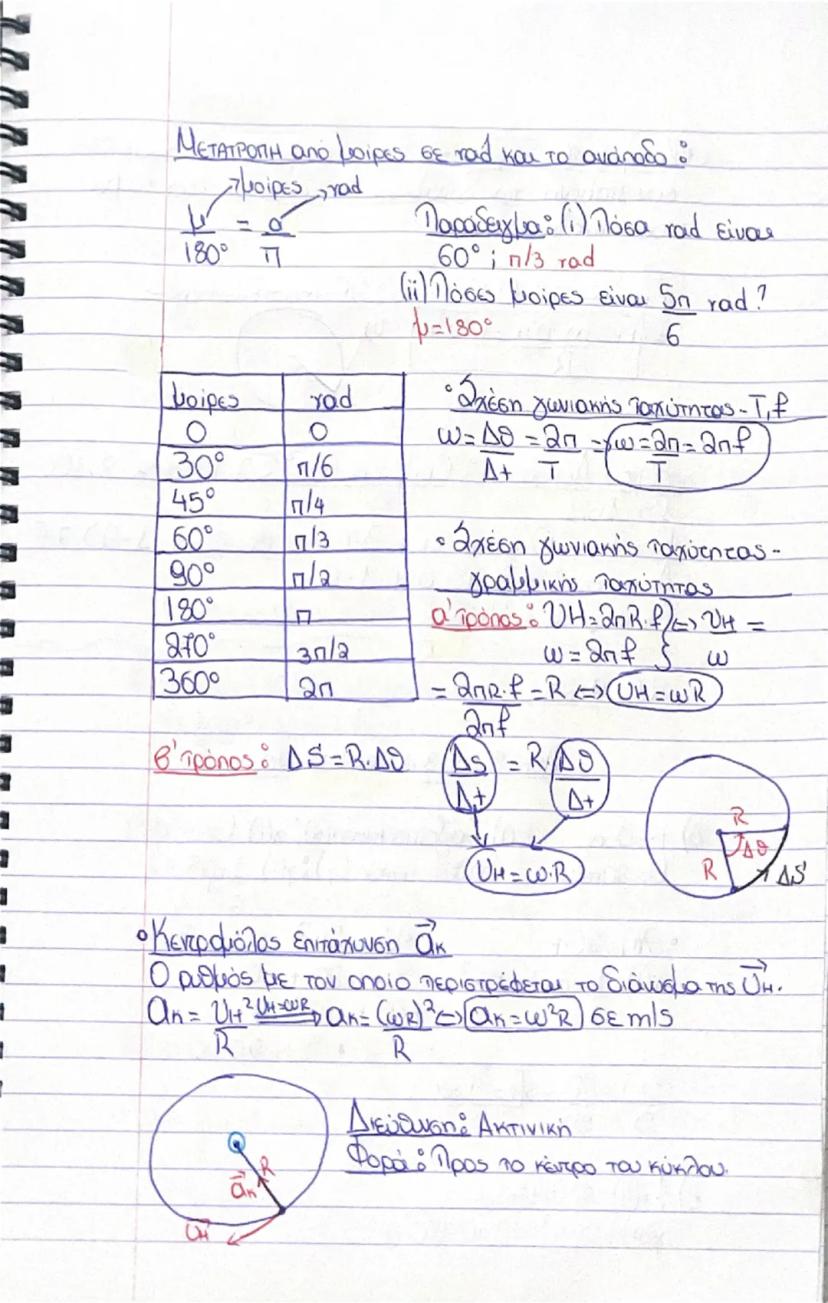 ΜΕΤΑΤΡΟΠΗ από μοίρες σε rad και το ανάποδο:
μοίρες rad
μ/180° = α/π
Παράδειγμα: (i) Πόσα rad είναι
60°; π/3 rad
(ii) Πόσες μοίρες είναι 5π/6 rad?
μ=180°
μοίρες rad
0 0
30° π/6
45° π/4
60° π/3
90° π/2
180° π
270° 3π/2
360° 2π
Σχέση γωνιακής ταχύτητας - T, f
ω = Δθ/Δt = 2π/T → ω = 2π/T = 2πf
Σχέση γωνιακής ταχύτητας -
γραμμικής ταχύτητας
α' τρόπος: UH = 2πR·f } ⇔ UH/ω =
ω = 2πf
= 2πR·f/2πf = R ⇔ UH = ωR
β' τρόπος: ΔS = R·Δθ ΔS/Δt = R·Δθ/Δt
UH = ω·R
R
R Δθ
ΔS
Κεντρομόλος επιτάχυνση a⃗κ
Ο ρυθμός με τον οποίο περιστρέφεται το διάνυσμα της U⃗H.
aκ = UH²/R UH=ωR ⇒ aκ = (ωR)²/R ⇔ aκ = ω²R σε m/s
Διεύθυνση: Ακτινική
Φορά: Προς το κέντρο του κύκλου.
R
a⃗κ
U⃗H